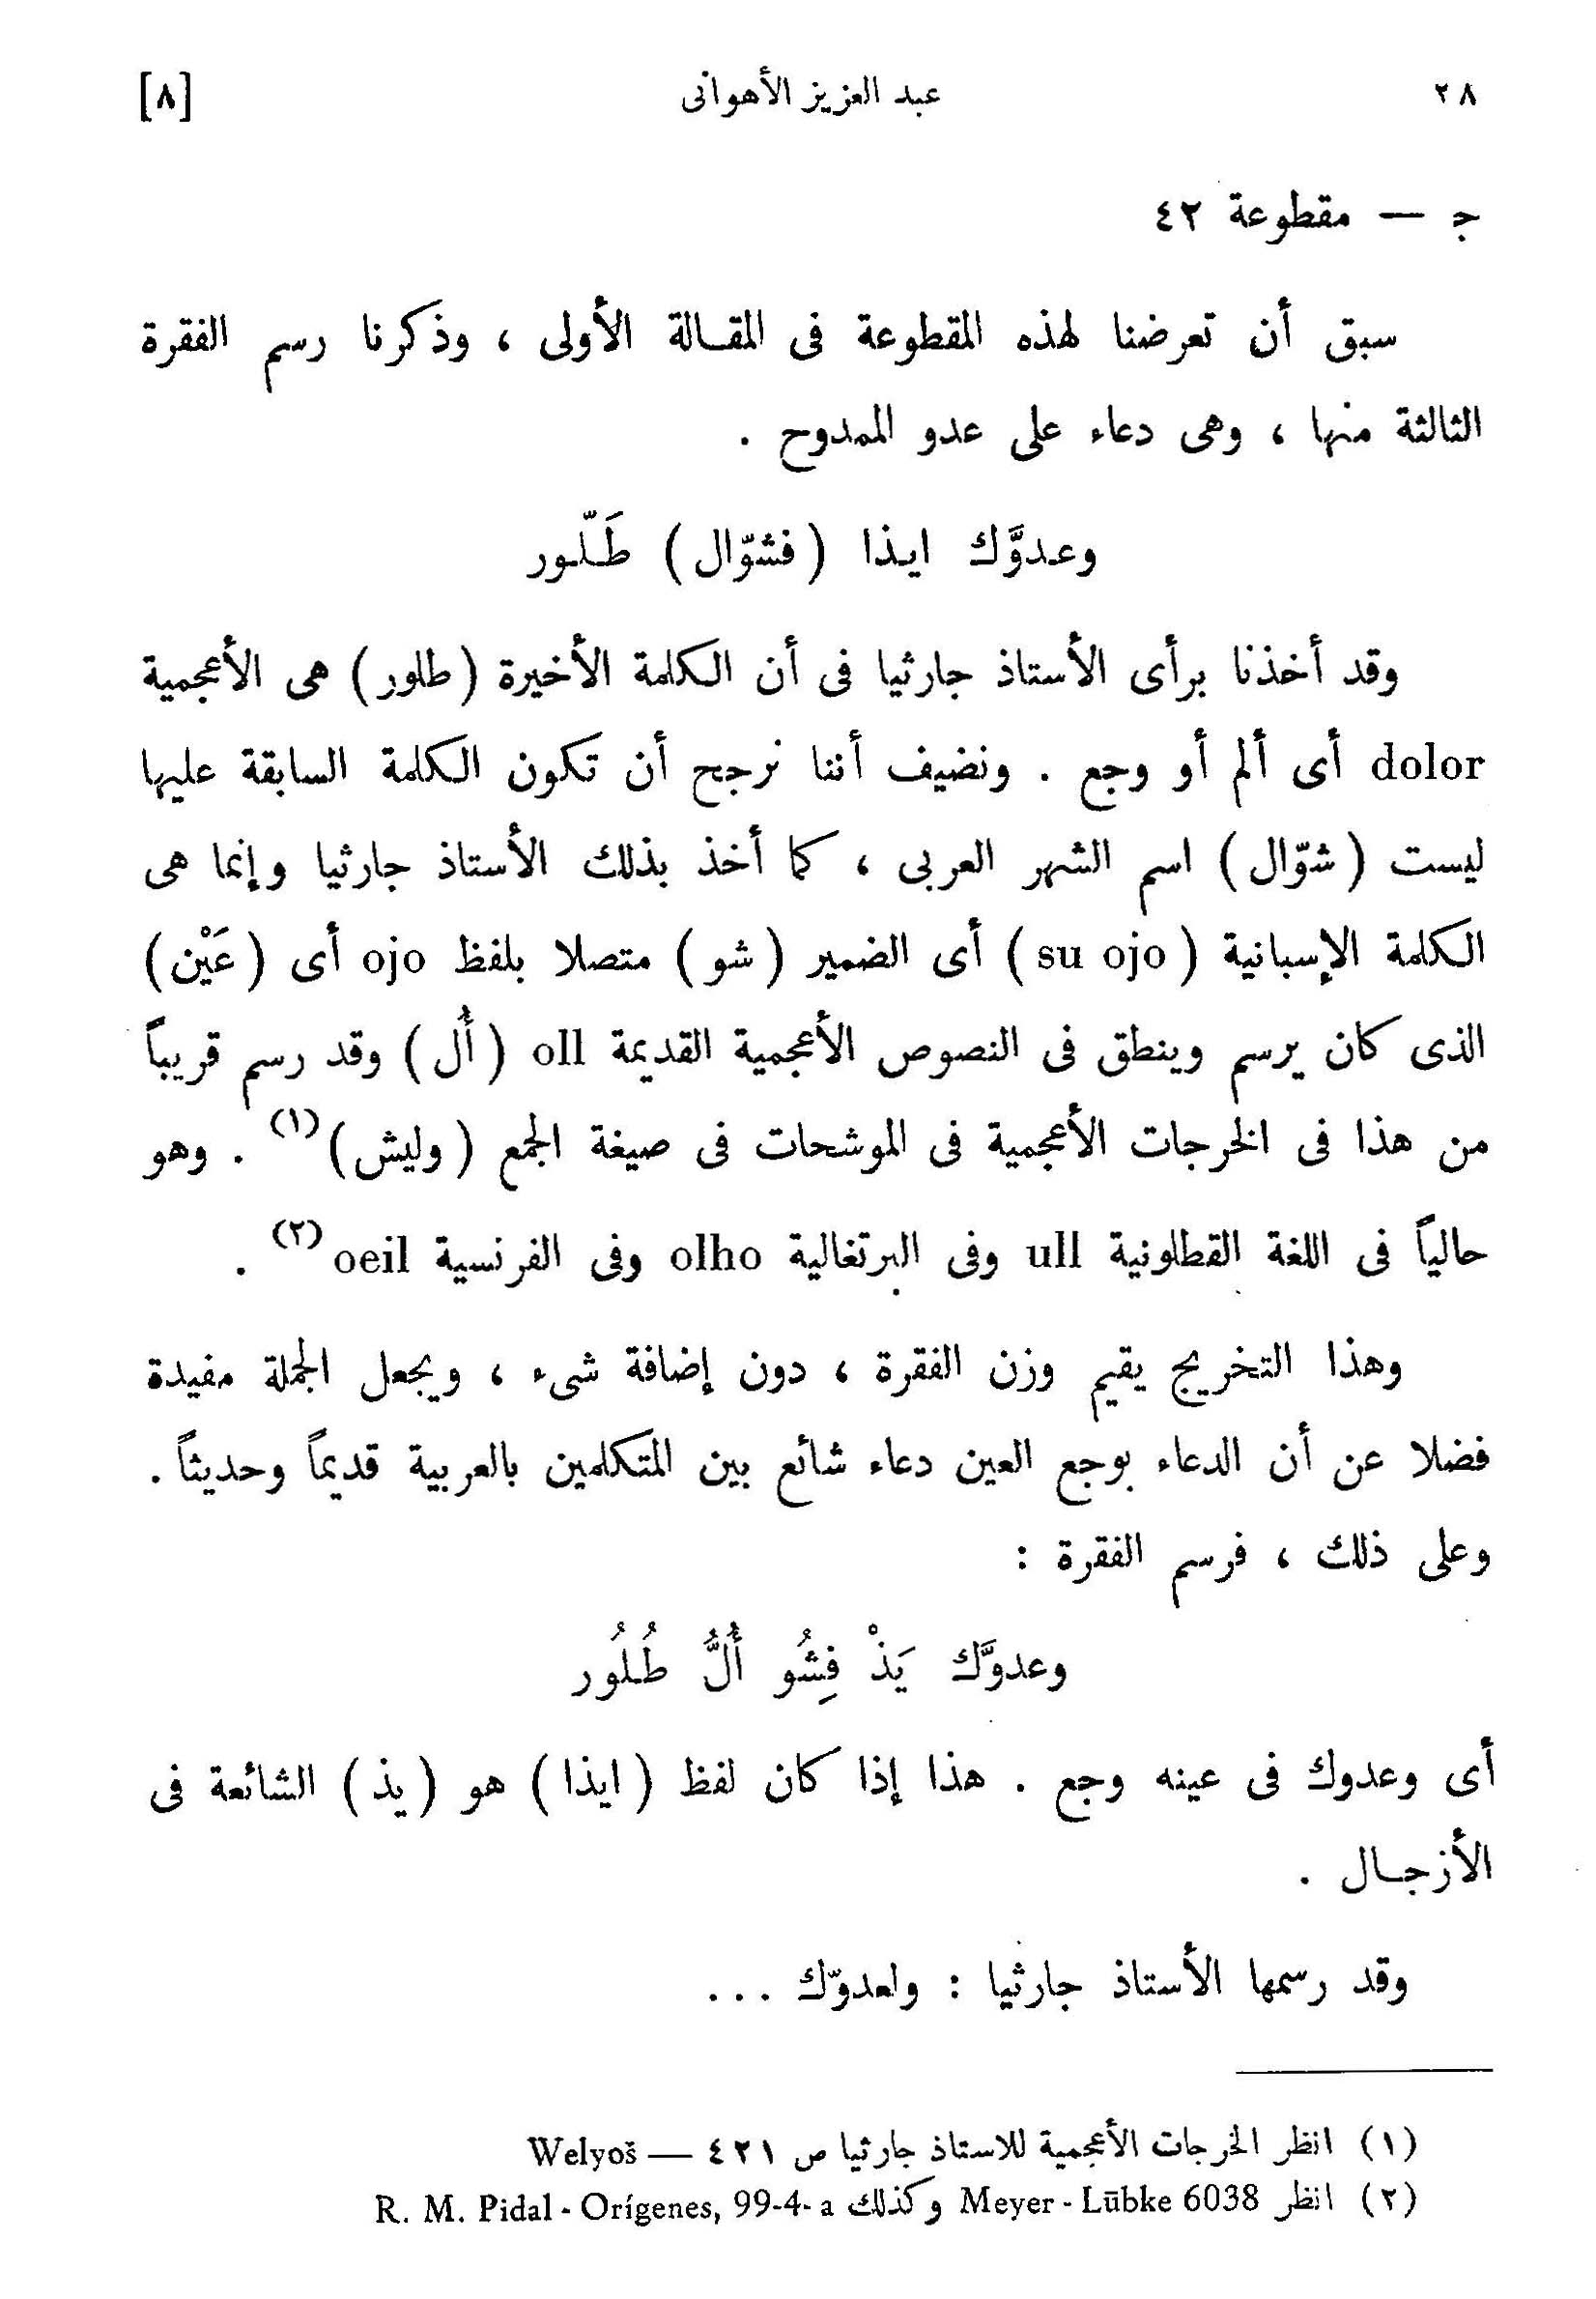 ٢٨ عبد العزيز الأهوانى [٨]
ج — مقطوعة ٤٢
سبق أن تعرضنا لهذه المقطوعة فى المقالة الأولى ، وذكرنا رسم الفقرة
الثالثة منها ، وهى دعاء على عدو الممدوح .
وعدوَّك ايذا (فشوّال) طَلّور
وقد أخذنا برأى الأستاذ جارثيا فى أن الكلمة الأخيرة (طلور) هى الأعجمية
dolor أى ألم أو وجع . ونضيف أننا نرجح أن تكون الكلمة السابقة عليها
ليست (شوّال) اسم الشهر العربى ، كما أخذ بذلك الأستاذ جارثيا وإنما هى
الكلمة الإسبانية (su ojo) أى الضمير (شو) متصلا بلفظ ojo أى (عَيْن)
الذى كان يرسم وينطق فى النصوص الأعجمية القديمة oll (أُل) وقد رسم قريباً
من هذا فى الخرجات الأعجمية فى الموشحات فى صيغة الجمع (وليش)(١) . وهو
حالياً فى اللغة القطلونية ull وفى البرتغالية olho وفى الفرنسية oeil(٢) .
وهذا التخريج يقيم وزن الفقرة ، دون إضافة شىء ، ويجعل الجملة مفيدة
فضلا عن أن الدعاء بوجع العين دعاء شائع بين المتكلمين بالعربية قديماً وحديثاً .
وعلى ذلك ، فرسم الفقرة :
وعدوَّك يَذْ فِشُو أُلُّ طُلُور
أى وعدوك فى عينه وجع . هذا إذا كان لفظ (ايذا) هو (يذ) الشائعة فى
الأزجال .
وقد رسمها الأستاذ جارثيا : ولعدوّك ...
(١) انظر الخرجات الأعجمية للاستاذ جارثيا ص ٤٢١ — Welyoš
(٢) انظر Meyer - Lūbke 6038 وكذلك R. M. Pidal - Orígenes, 99-4- a